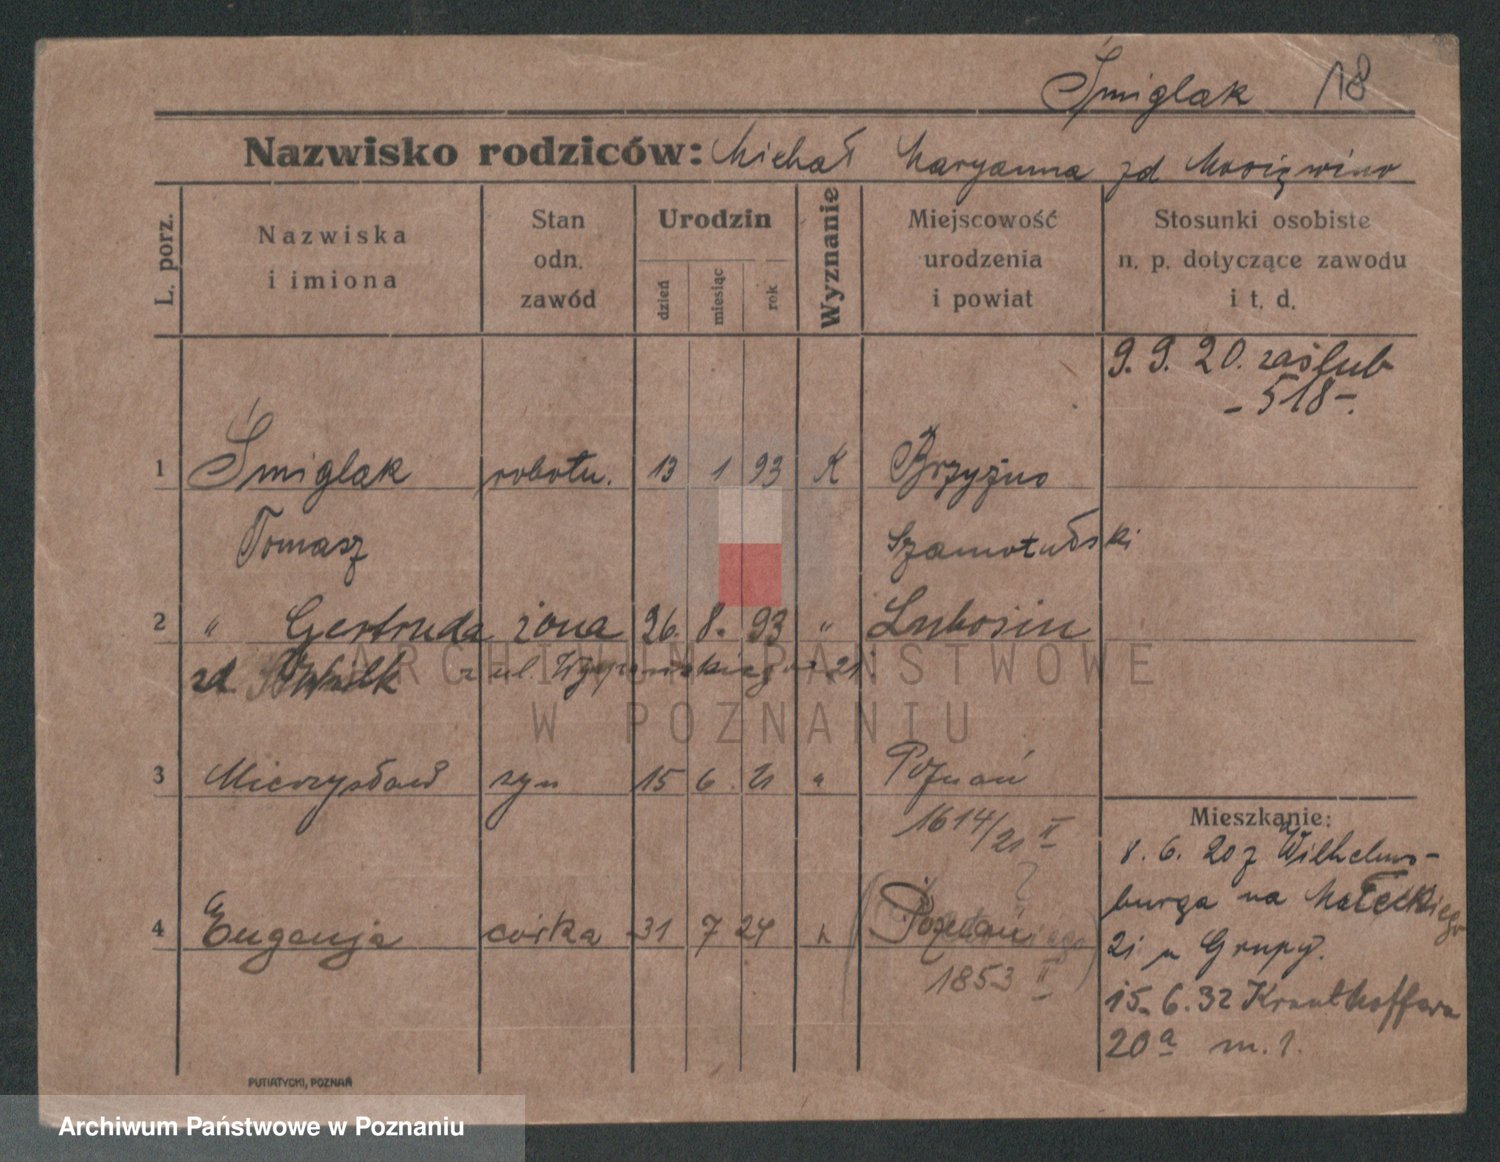 Śmiglak 18
Nazwisko rodziców: Michał Maryanna zd
L. porz.
Nazwiska
i imiona
Stan
odn.
zawód
Urodzin
dzień
miesiąc
rok
Wyznanie
Miejscowość
urodzenia
i powiat
Stosunki osobiste
n. p. dotyczące zawodu
i t. d.
9. 9. 20. zaślub
- 518 -.
1 Śmiglak robotn. 13 1 93 K
Tomasz Szamotulski
2 " Gertruda żona 26. 8. 93 " Lubosin
zd. z ul. 21.
3 Mieczysław syn 15 6 21 " Poznań
1614/21 II
4 Eugenja córka 31 7 24 " Poznań
1853 II
Mieszkanie:
8. 6. 20 z Wilhelms-
burga na Małeckiego
21 u Grupy.
15. 6. 32 Krauthoffera
20a m. 1.
PUTIATYCKI, POZNAŃ
ARCHIWUM PAŃSTWOWE
W POZNANIU
Archiwum Państwowe w Poznaniu